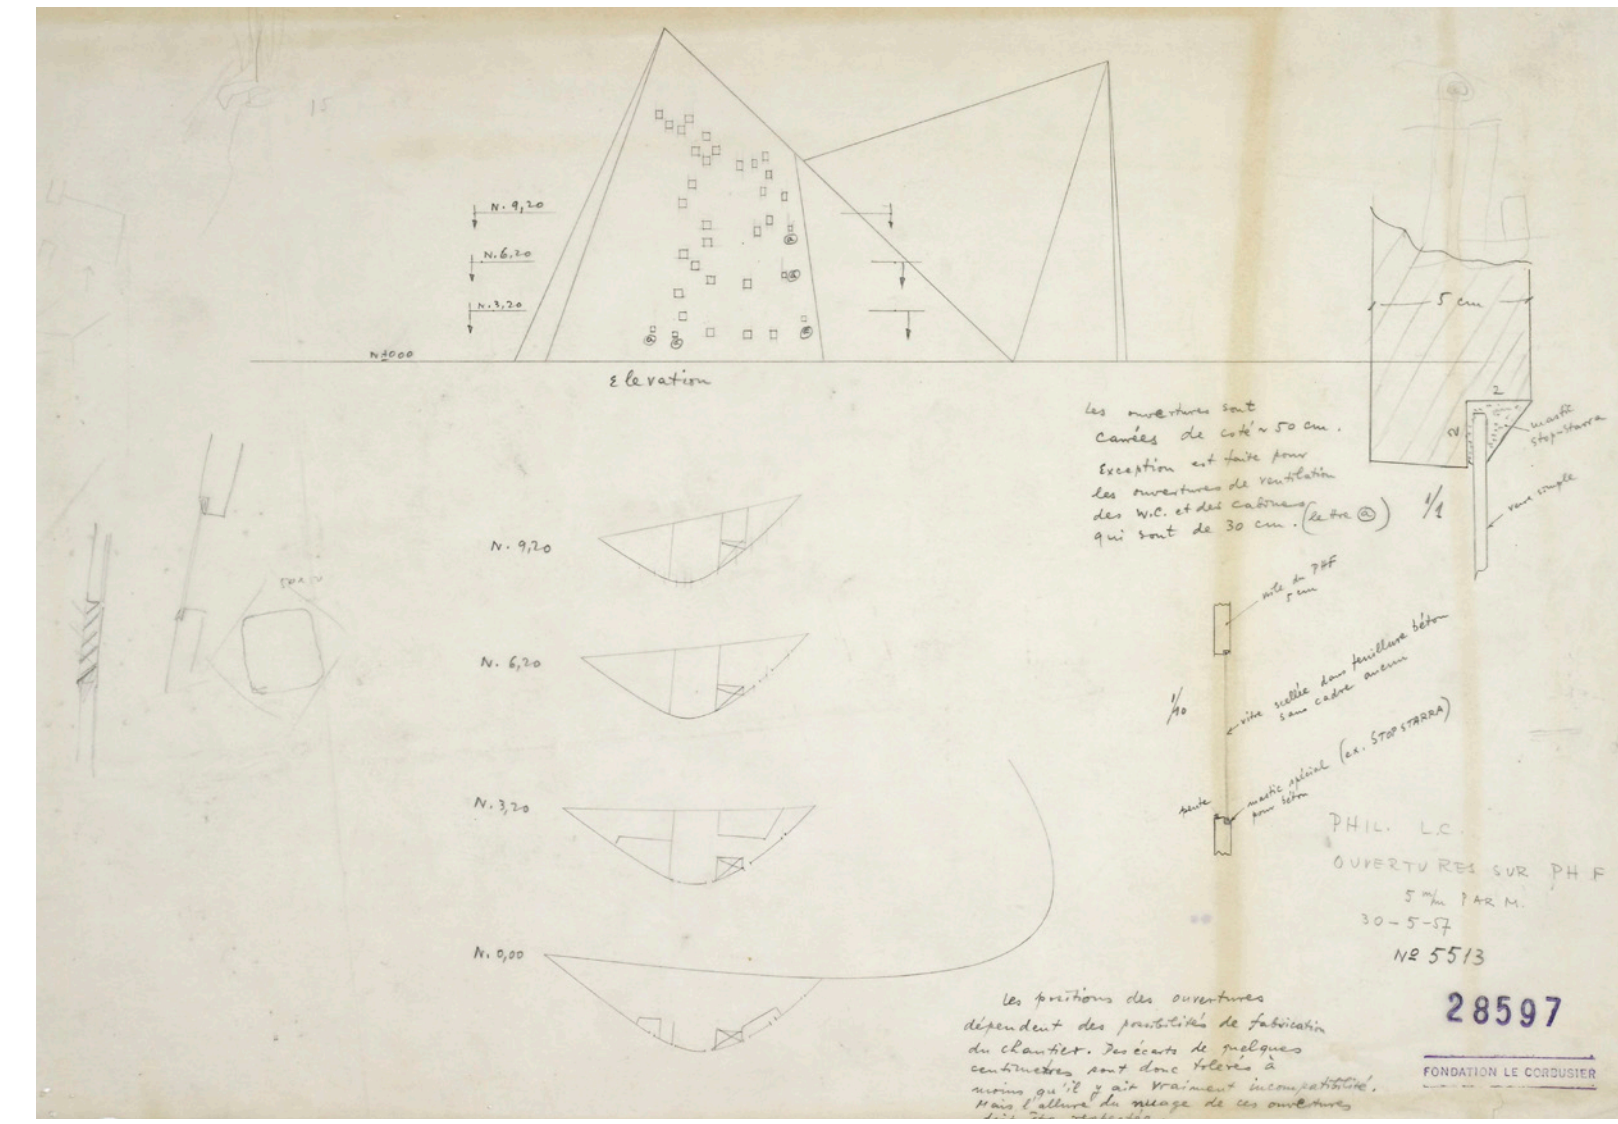 15
N. 9,20
N. 6,20
N. 3,20
N ± 000
Elevation
5 cm
2
2
mastic
Stop-Starra
verre simple
1/1
Les ouvertures sont
carrées de coté ~ 50 cm.
Exception est faite pour
les ouvertures de ventilation
des W.C. et des cabines
qui sont de 30 cm. (lettre ⓐ)
N. 9,20
N. 6,20
N. 3,20
N. 0,00
voile du PHF
5 cm
1/10
vitre scellée dans feuillure béton
sans cadre aucun
mastic spécial (ex. STOP STARRA)
pour béton
pente
PHIL. L.C.
OUVERTURES SUR PH F
5 m/m PAR M.
30-5-57
Nº 5513
28597
FONDATION LE CORBUSIER
Les positions des ouvertures
dépendent des possibilités de fabrication
du chantier. Des écarts de quelques
centimètres sont donc tolérés à
moins qu'il y ait vraiment incompatibilité.
Mais l'allure du nuage de ces ouvertures